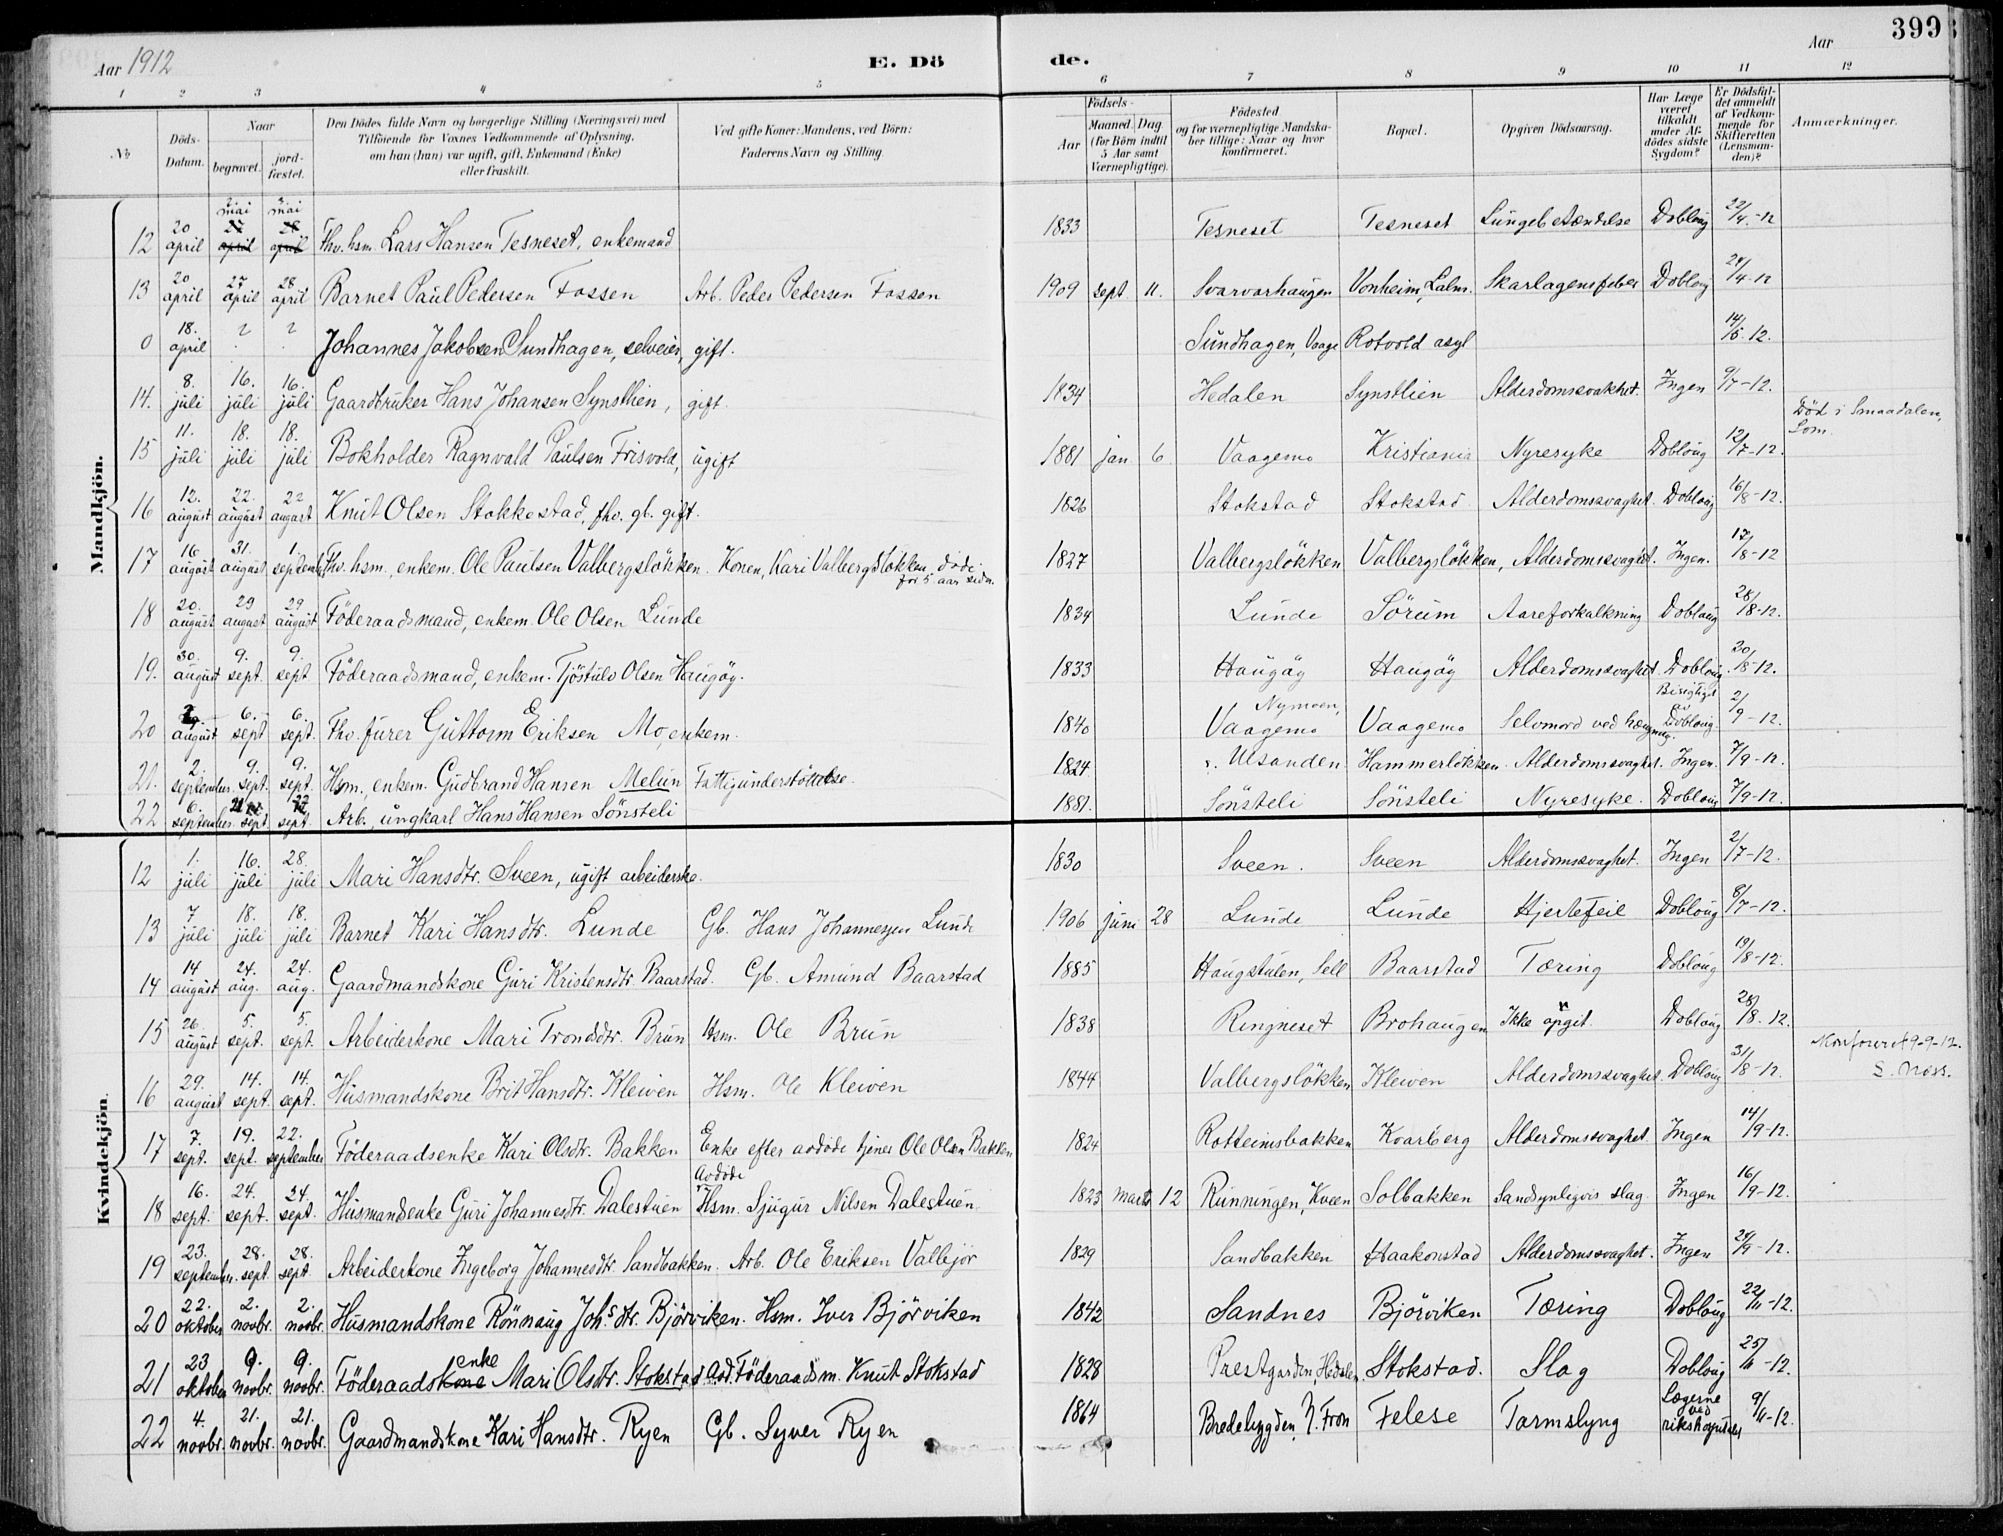 399
Aar 1912 E. Dö de. Aar
1 2 3 4 5 6 7 8 9 10 11 12
No Döds-Datum. Naar begravet. jordfæstet. Den Dödes fulde Navn og borgerlige Stilling (Næringsvei) med Tilföiende for Voxnes Vedkommende af Oplysning, om han (hun) var ugift, gift, Enkemand (Enke) eller fraskilt. Ved gifte Koner: Mandens, ved Börn: Faderens Navn og Stilling. Födsels- Aar Maaned. Dag (for Börn indtil 5 Aar samt Værnepligtige). Födested og for værnepligtige Mandskaber tillige: Naar og hvor konfirmeret. Bopæl. Opgiven Dödsaarsag. Har Læge været tilkaldt under Afdödes sidste Sygdom? Er Dödsfaldet anmeldt af Vedkommende for Skifteretten (Lensmanden)? Anmærkninger.
Mandkjön.
12 20 april mai april mai april Fhv. hsm. Lars Hansen Tesneset, enkemand 1833 Tesneset Tesneset Lungebetændelse Dobloug 22/4-12
13 20 april 27 april 28 april Barnet Paul Pedersen Fossen Arb. Peder Pedersen Fossen 1909 sept 11. Svarvarhaugen Vonheim, Lalm. Skarlagensfeber Dobloug 24/4-12
0 18. april ? ? Johannes Jakobsen Sundhagen, selveier, gift. Sundhagen, Vaage Rotvold asyl 14/5-12.
14. 8. juli 16. juli 16. juli Gaardbruker Hans Johansen Synstlien, gift. 1834 Hedalen Synstlien Alderdomssvakhet. Ingen 9/7-12.
15 11. juli 18. juli 18. juli Bokholder Ragnvald Paulsen Frisvold, ugift 1881 jan 6 Vaagemo Kristiania Nyresyke Dobloug 12/7-12. Död i Smaadalen, Lom.
16 12. august 22. august 22 august Knut Olsen Stokkestad, fhv. gb. gift. 1826 Stokstad Stokstad Alderdomssvaghet. Dobloug 16/8-12.
17 16 august 31. august 1. septemb. Fhv. hsm., enkem. Ole Paulsen Valbergslökken. Konen, Kari Valbergslökken, döde for 5 aar siden. 1827 Valbergslökken Valbergslökken, Alderdomssvaghet. Ingen. 17/8-12
18 20. august 29 august 29 august Föderaadsmand, enkem. Ole Olsen Lunde 1834 Lunde Sörum Aareforkalkning Dobloug 28/8-12.
19. 30. august 9. sept. 9. sept Föderaadsmand, enkem. Tjöstulv Olsen Haugöy. 1833 Haugöy Haugöy Alderdomssvaghet Dobloug 20/8-12.
20 august 6. sept 6. sept. Fhv. furer Guttorm Eriksen Mo, enkem. 1840 Nymoen, Vaagemo Vaagemo Selvmord ved hængning. Dobloug 2/9-12.
21. 2. september 9. sept. 9. sept. Hsm., enkem. Gudbrand Hansen Melun Fattigunderstöttelse 1824 Ulsanden Hammerlökken Alderdomssvaghet. Ingen. 7/9-12.
22 6. september 21 sept. 22 sept. Arb., ungkarl Hans Hansen Sönsteli 1881. Sönsteli Sönsteli Nyresyke. Dobloug 7/9-12.
Kvindekjön.
12 1. juli 16. juli 28. juli Mari Hansdtr. Sveen, ugift arbeiderske. 1830 Sveen. Sveen Alderdomssvaghet. Ingen 2/7-12.
13 7. juli 18. juli 18. juli Barnet Kari Hansdtr. Lunde Gb. Hans Johannesen Lunde 1906 juni 28 Lunde Lunde Hjertefeil Dobloug 8/7-12.
14 14 august 24. aug. 24. aug. Gaardmandskone Guri Kristensdtr. Baarstad. Gb. Amund Baarstad 1885 Haugstulen, Sell Baarstad Tæring Dobloug 19/8-12.
15 26. august 5. sept. 5. sept. Arbeiderkone Mari Trondsdtr. Brun Hsm. Ole Brun 1838 Ringneset Brohaugen Ikke opgit Dobloug 28/8-12.
16 29. august 14. sept. 14. sept. Husmandskone Brit Hansdtr. Kleiven Hsm. Ole Kleiven 1844 Valbergslökken Kleiven Alderdomssvaghet. Dobloug 31/8-12. Konfereret 9-9-12. S. Næss.
17 7. sept. 19. sept. 22. september Föderaadsenke Kari Olsdtr. Bakken Enke efter avdöde tjener Ole Olsen Bakken 1824 Rotteimsbakken Kvarberg Alderdomssvaghet Ingen 14/9-12.
18 16. sept. 24. sept. 24. sept. Husmandsenke Guri Johannesdtr. Dalestuen Avdöde Hsm. Sjugur Nilsen Dalestuen 1823 marts 12 Runningen, Kveen Solbakken Sandsynligvis slag Ingen 16/9-12.
19 23. september 28. sept. 28. sept. Arbeiderkone Ingeborg Johannesdtr. Sandbakken. Arb. Ole Eriksen Vallejör 1829 Sandbakken Haakonstad Alderdomssvaghet. Ingen 24/9-12.
20 22. oktober 2. novbr. 2. novbr. Husmandskone Rönnaug Johs. dtr. Björviken. Hsm. Iver Björviken 1842 Sandnes Björviken Tæring Dobloug 22/11-12.
21 23 oktober 9. novbr. 9. novbr. Föderaadskone enke Mari Olsdtr. Stokstad. Avd. Föderaadsm. Knut Stokstad 1828 Prestgarden, Hedalen Stokstad. Slag Dobloug 25/10-12.
22 4. novbr. 21. novbr. 21. novbr. Gaardmandskone Kari Hansdtr. Ryen Gb. Syver Ryen 1864 Bredebygden, N. Fron Felese Tarmslyng Lægerne ved rikshospitalet 9/11-12.